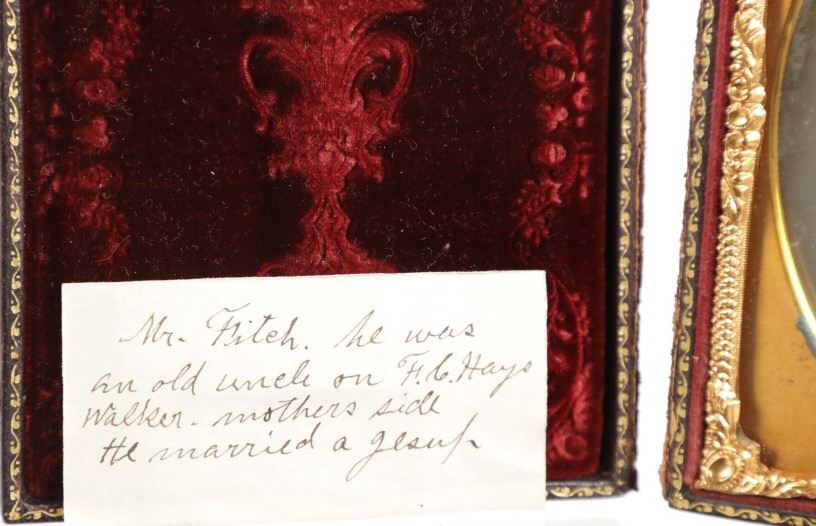 Mr. Fitch. he was
an old uncle on F. C. Hays
Walker - mothers side
He married a Jesup